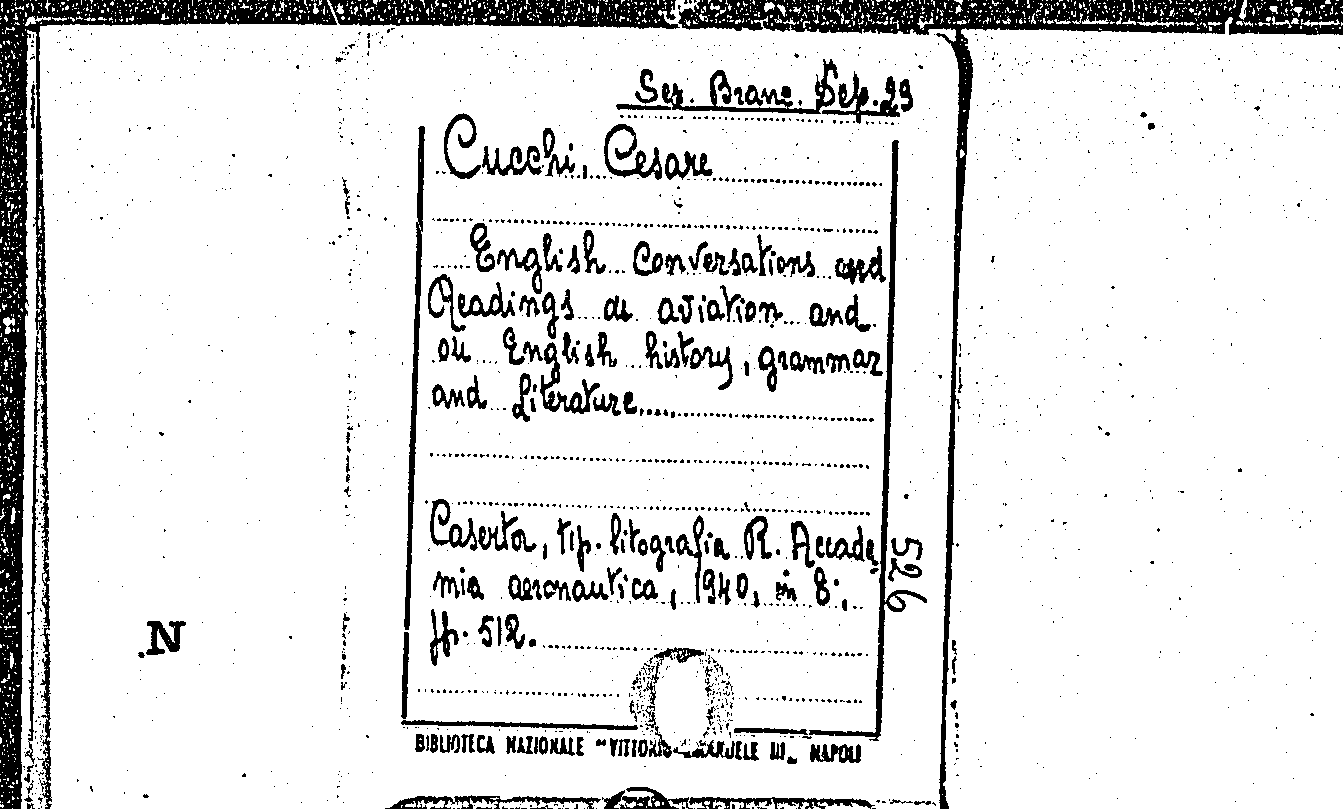 Sez. Branc. Dep. 29
Cucchi, Cesare
English Conversations and
Readings on aviation and
on English history, grammar
and literature....
Caserta, tip. litografia R. Accade-
mia aeronautica, 1940, in 8°,
pp. 512.
526
N
BIBLIOTECA NAZIONALE "VITTORIO EMANUELE III„ NAPOLI